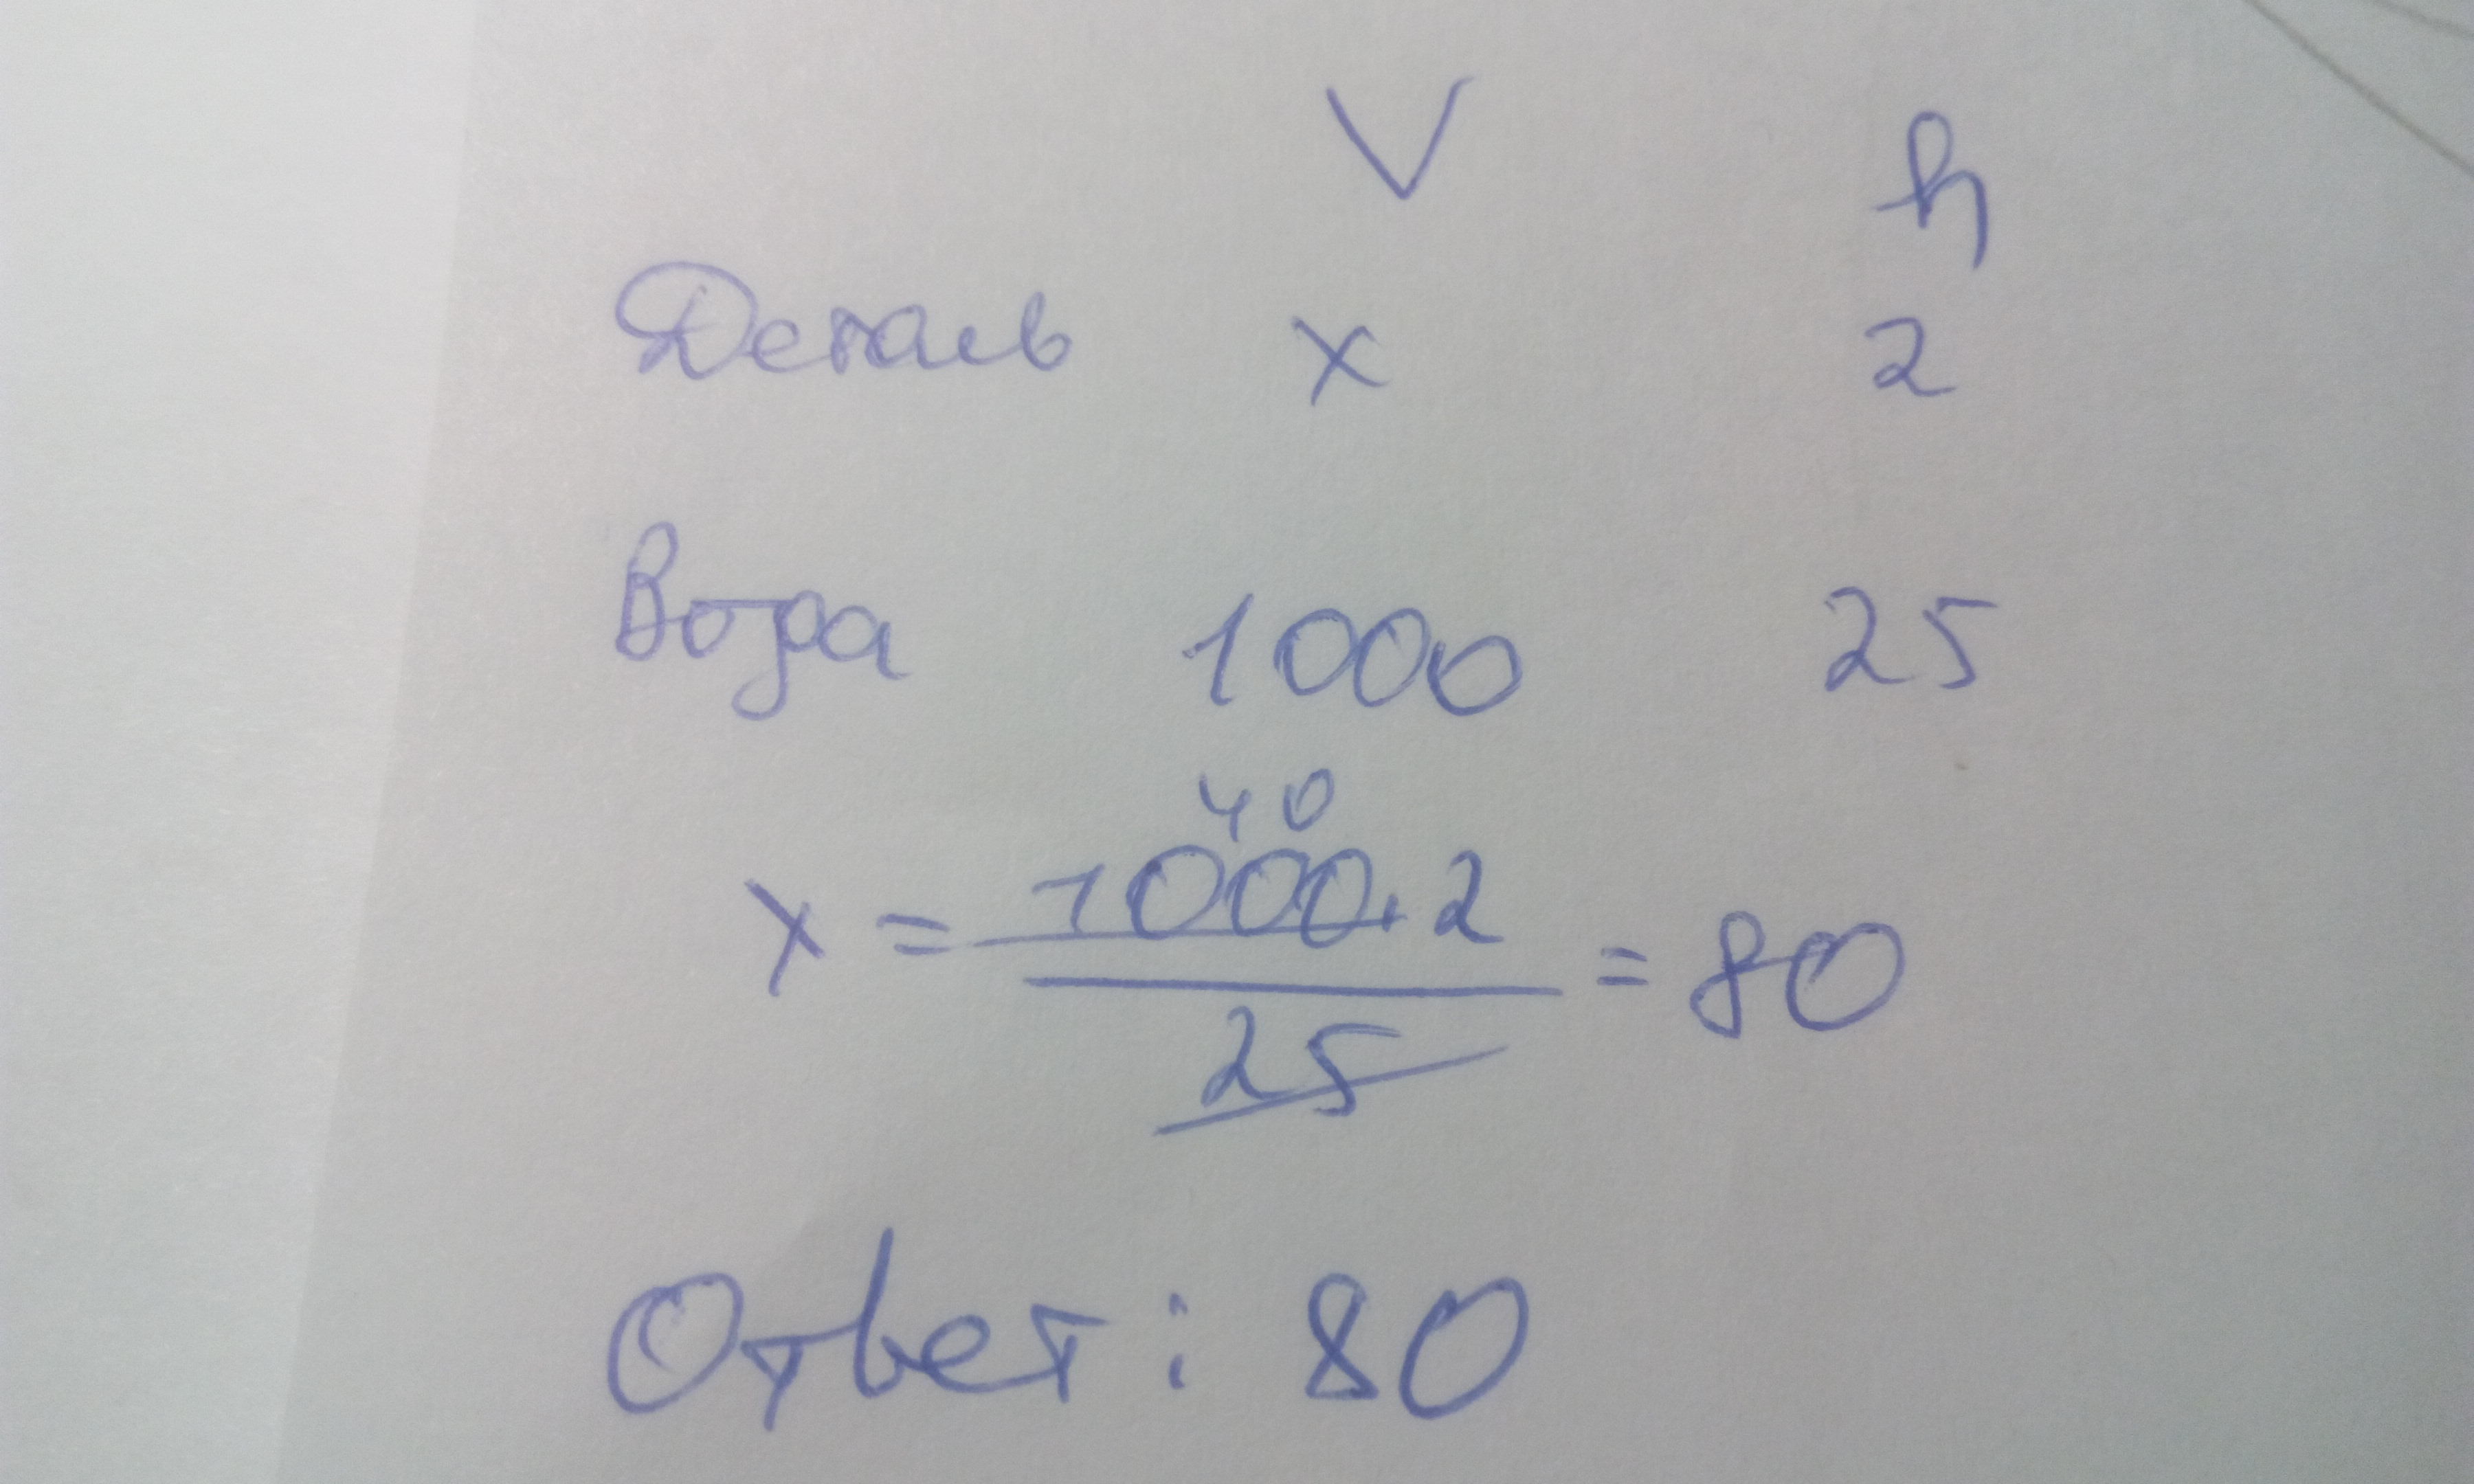 V h
Деталь x 2
Вода 1000 25
40
x = 1000.2 / 25 = 80
Ответ: 80